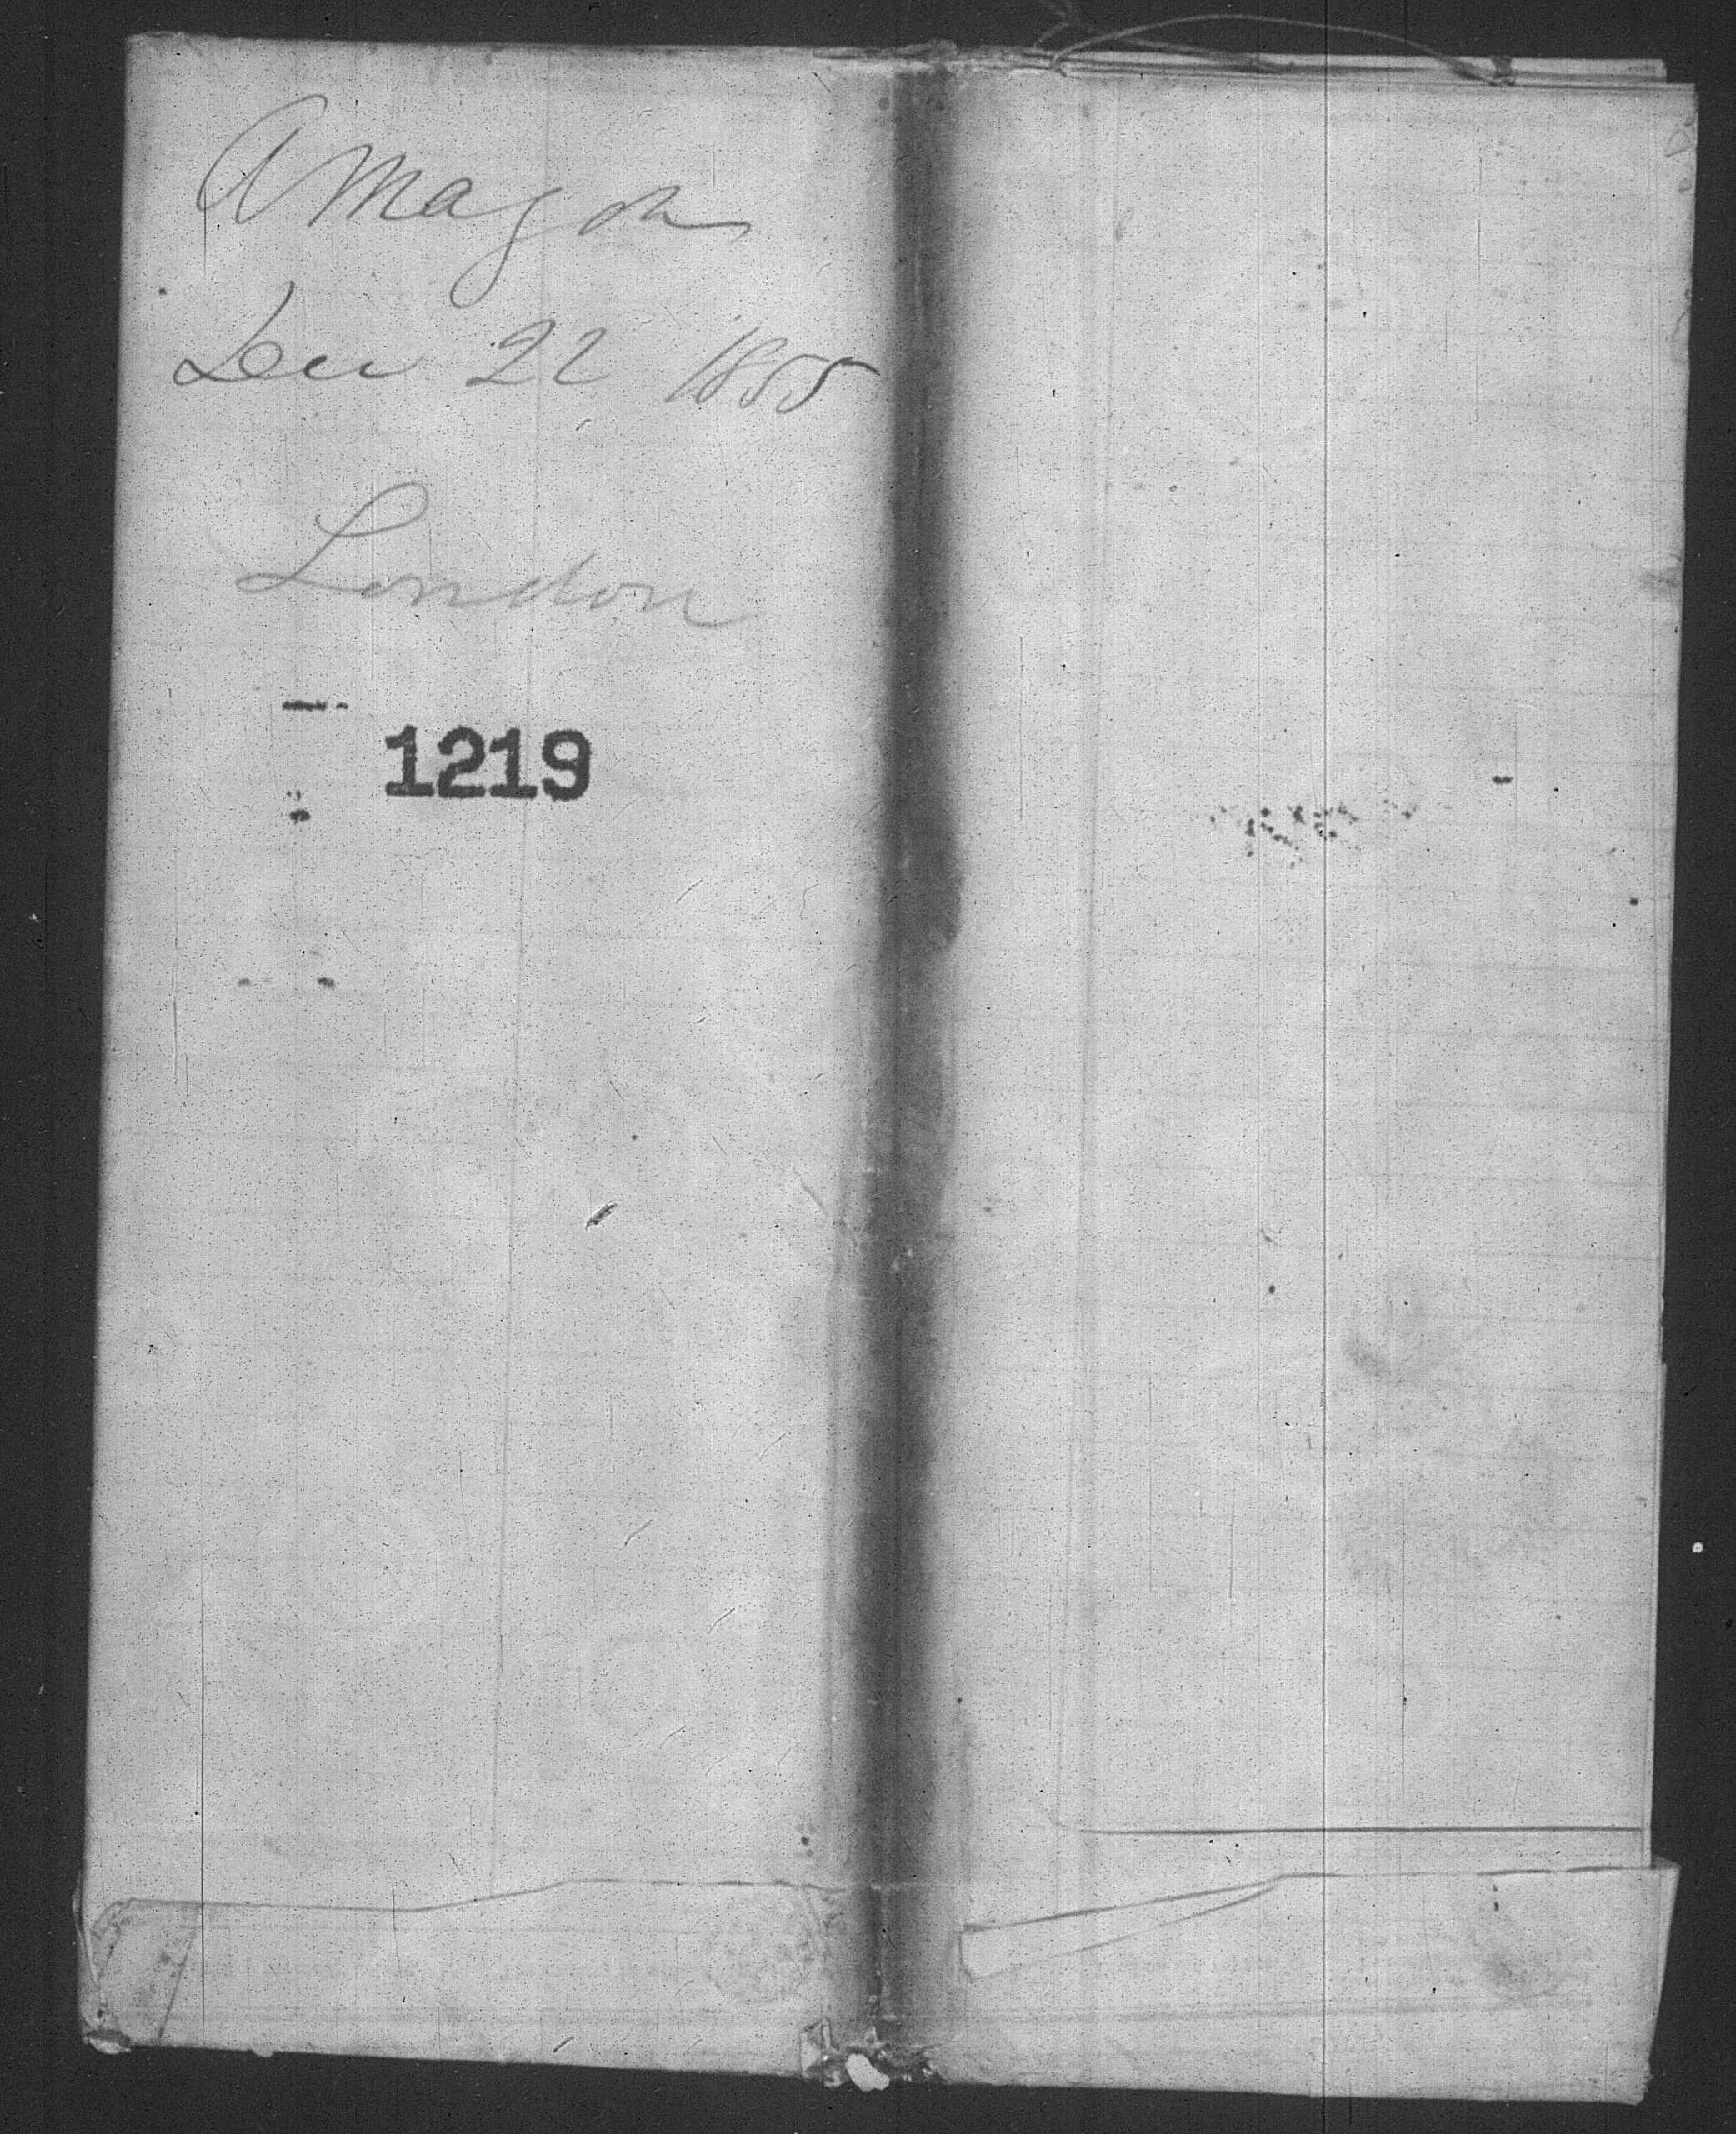 Amazon
Dec 22 1855
London
1219